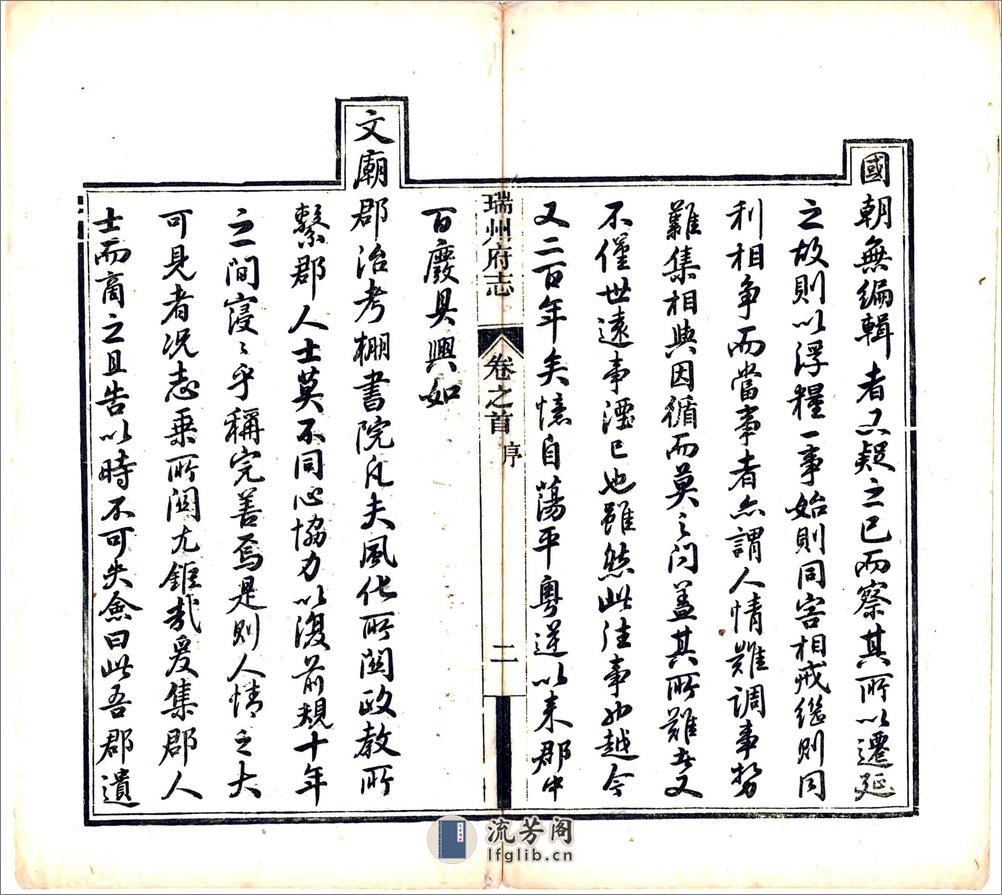 國朝無編輯者又疑之已而察其所以遷延
之故則以浮糧一事始則同害相戒繼則同
利相爭而當事者亦謂人情難調事勢
難集相與因循而莫之問蓋其所難者又
不僅世遠事湮已也雖然此往事也越今
又二百年矣憶自蕩平粵逆以來郡中
瑞州府志 卷之首 序 二
百廢具興如
文廟郡治考棚書院凡夫風化所關政教所
繫郡人士莫不同心協力以復前規十年
之間寖寖乎稱完善焉是則人情之大
可見者况志乘所關尤鉅哉爰集郡人
士而商之且告以時不可失僉曰此吾郡遺
流芳阁
lfglib.cn